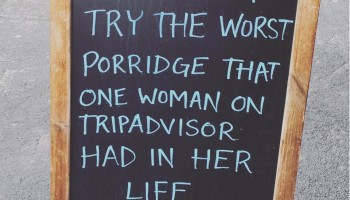 TRY THE WORST
PORRIDGE THAT
ONE WOMAN ON
TRIPADVISOR
HAD IN HER
LIFE